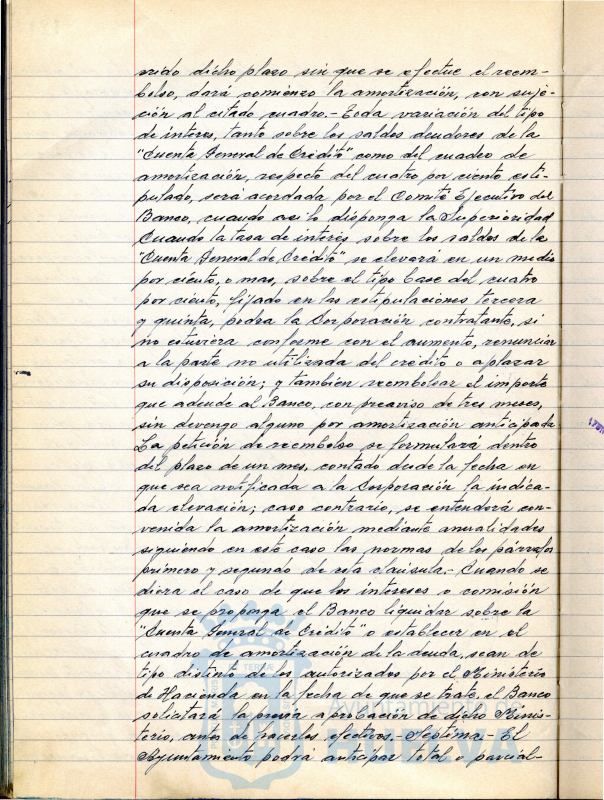 rrido dicho plazo sin que se efectue el reem-
bolso, dará comienzo la amortización, con suje-
ción al citado cuadro.- Toda variación del tipo
de interes, tanto sobre los saldos deudores de la
"Cuenta General de Crédito" como del cuadro de
amortización, respecto del cuatro por ciento esti-
pulado, será acordada por el Comité Ejecutivo del
Banco, cuando asi lo disponga la Superioridad
Cuando la tasa de interés sobre los saldos de la
"Cuenta General de Crédito" se elevará en un medio
por ciento, o mas, sobre el tipo base del cuatro
por ciento, fijado en las estipulaciones tercera
y quinta, podra la Corporación contratante, si
no estuviera conforme con el aumento, renunciar
a la parte no utilizada del crédito o aplazar
su disposición; y tambien reembolsar el importe
que adeude al Banco, con preaviso de tres meses,
sin devengo alguno por amortización anticipada
La petición de reembolso se formulará dentro
del plazo de un mes, contado desde la fecha en
que sea notificada a la Corporación la indica-
da elevación; caso contrario, se entenderá con-
venida la amortización mediante anualidades
siguiendo en este caso las normas de los párrafos
primero y segundo de esta clausula.- Cuando se
diera el caso de que los intereses o comisión
que se proponga el Banco liquidar sobre la
"Cuenta General de Crédito" o establecer en el
cuadro de amortización de la deuda, sean de
tipo distinto de los autorizados por el Ministerio
de Hacienda en la fecha de que se trate, el Banco
solicitará la previa aprobación de dicho Minis-
terio, antes de hacerlos efectivos.- Séptima. El
Ayuntamiento podrá anticipar total o parcial-
Ayuntamiento de
HUELVA